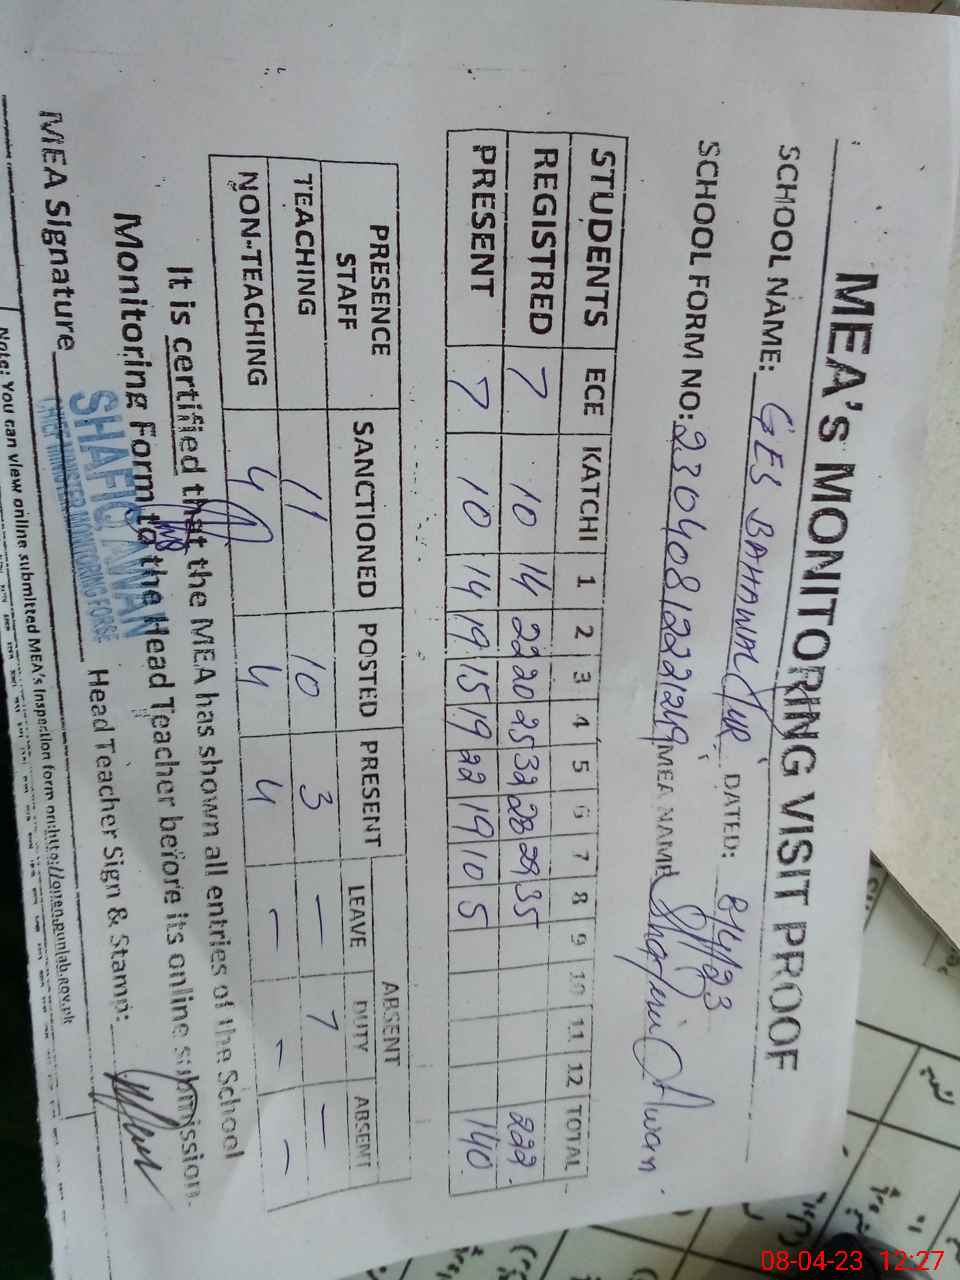 MEA's MONITORING VISIT PROOF
SCHOOL NAME: GES BAHAWALPUR DATED: 8/4/23
SCHOOL FORM NO: 230408122249 MEA NAME Awan
STUDENTS ECE KATCHI 1 2 3 4 5 6 7 8 9 10 11 12 TOTAL
REGISTRED 7 10 14 22 20 25 32 28 29 35 222
PRESENT 7 10 14 19 15 19 22 19 10 5 140
PRESENCE STAFF SANCTIONED POSTED PRESENT ABSENT
LEAVE DUTY ABSENT
TEACHING 11 10 3 — 7 —
NON-TEACHING 4 4 4 — — —
It is certified that the MEA has shown all entries of the School
Monitoring Form to the Head Teacher before its online submission.
MEA Signature Head Teacher Sign & Stamp:
SHAFIQ AWAN
CHIEF MINISTER MONITORING FORSE
Note: You can view online submitted MEA's Inspection form on: http://open.punjab.gov.pk
08-04-23 12:27